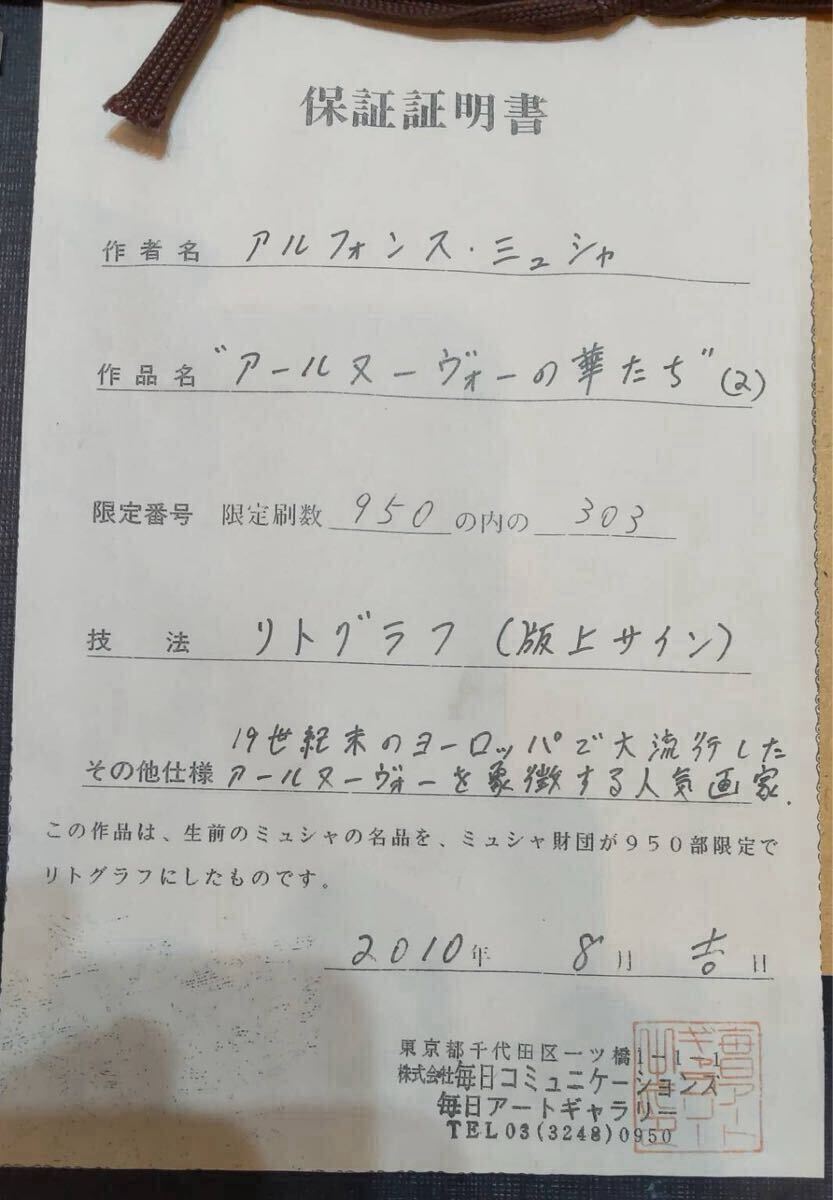 保証証明書
作者名 アルフォンス・ミュシャ
作品名 "アールヌーヴォーの華たち" (2)
限定番号 限定刷数 950 の内の 303
技 法 リトグラフ (版上サイン)
19世紀末のヨーロッパで大流行した
その他仕様 アールヌーヴォーを象徴する人気画家.
この作品は、生前のミュシャの名品を、ミュシャ財団が950部限定で
リトグラフにしたものです。
2010年 8月 吉日
東京都千代田区一ツ橋1-1-1
株式会社毎日コミュニケーションズ
毎日アートギャラリー
TEL03(3248)0950